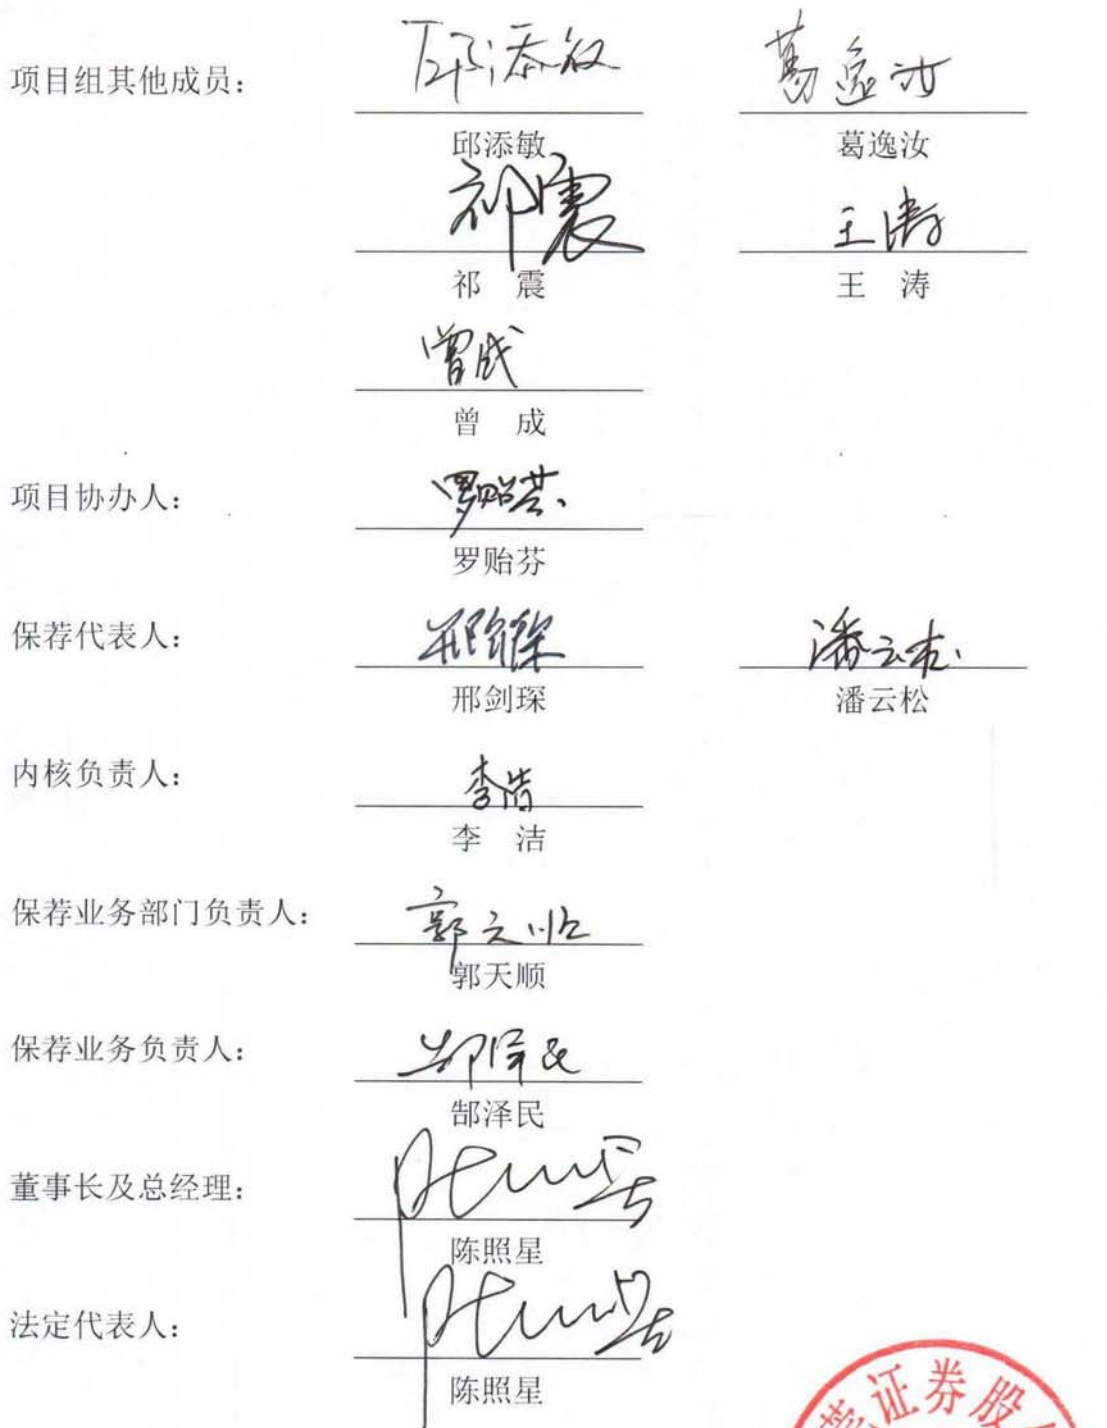 项目组其他成员：
邱添敏 葛逸汝
邱添敏 葛逸汝
祁震 王涛
祁 震 王 涛
曾成
曾 成
项目协办人：
罗贻芬
罗贻芬
保荐代表人：
邢剑琛 潘云松
邢剑琛 潘云松
内核负责人：
李洁
李 洁
保荐业务部门负责人：
郭天顺
郭天顺
保荐业务负责人：
郜泽民
郜泽民
董事长及总经理：
陈照星
陈照星
法定代表人：
陈照星
陈照星
证券股